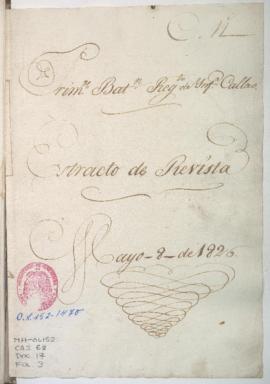 Prim.r Bat.n Reg.to de Inf.a Callao
Extracto de Revista
Mayo-8-de 1826
O.L 152-1470
MH-OL152
CAJ 68
DOC 17
FOL 3